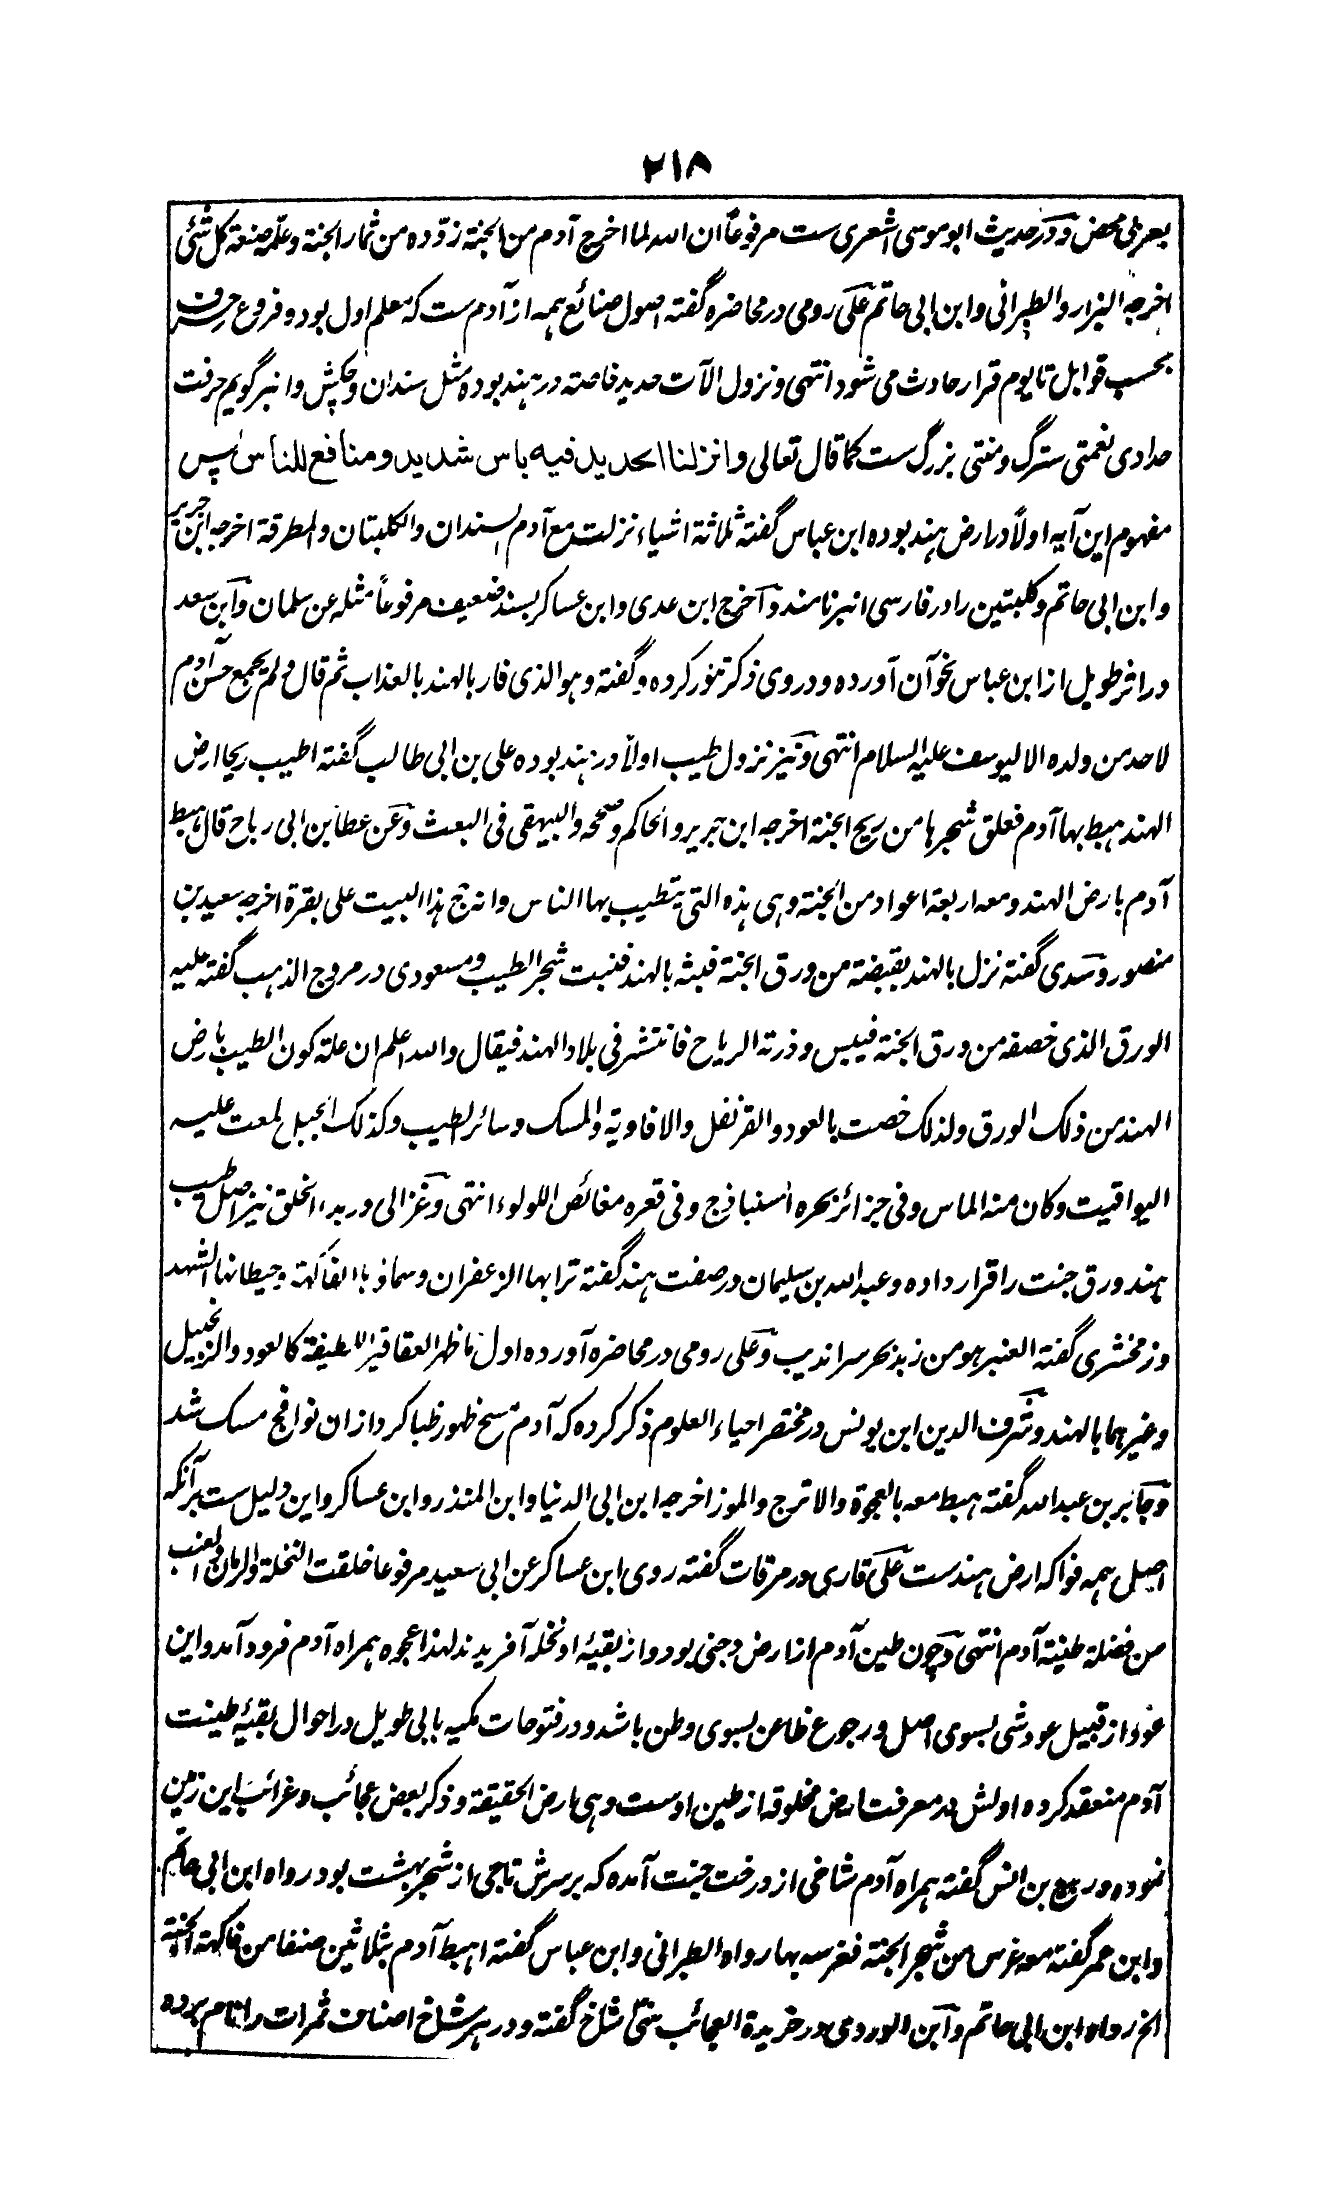 ۲۱۸
بعربی محض و در حدیث ابو موسی اشعری ست مرفوعاً ان الله لما اخرج آدم من الجنة زوّده من ثمار الجنة و علّمه صنعة کل شئی
اخرجه البزار والطبرانی و ابن ابی حاتم علی رومی در محاضره گفته اصول صنائع همه از آدم ست که معلم اول بود و فروع حرف
بحسب قوابل تا یوم قرار حادث می شود انتهی و نزول آلات حدید خاصته در هند بوده مثل سندان و چکش و انبر گویم حرفت
حدادی نعمتی سترگ و منتی بزرگ ست کما قال تعالی و انزلنا الحدید فیه باس شدید و منافع للناس پس
مفهوم این آیه اولاً در ارض هند بوده ابن عباس گفته ثلاثة اشیاء نزلت مع آدم السندان والکلبتان والمطرقة اخرجه ابن جریر
و ابن ابی حاتم و کلبتین را در فارسی انبر نامند و اخرج ابن عدی و ابن عساکر بسند ضعیف مرفوعاً مثله عن سلمان و ابن سعد
در اثر طویل از ابن عباس نحو آن آورده و دروی ذکر تنور کرده و گفته و هو الذی فار بالهند بالعذاب ثم قال ولم یجمع حسن آدم
لاحد من ولده الا لیوسف علیه السلام انتهی و نیز نزول طیب اولاً در هند بوده علی بن ابی طالب گفته اطیب ریحا ارض
الهند هبط بها آدم فعلق شجرها من ریح الجنة اخرجه ابن جریر والحاکم و صححه والبیهقی فی البعث و عن عطا بن ابی رباح قال هبط
آدم بارض الهند و معه اربعة اعواد من الجنة وهی هذه التی یتطیب بها الناس و انه حج هذا البیت علی بقرة اخرجه سعید بن
منصور و سدی گفته نزل بالهند بقبضة من ورق الجنة فبثه بالهند فنبت شجر الطیب و مسعودی در مروج الذهب گفته علیه
الورق الذی خصفه من ورق الجنة فیبس و ذرته الریاح فانتشر فی بلاد الهند فیقال والله اعلم ان علة کون الطیب بارض
الهند من ذلک الورق ولذلک خصت بالعود والقرنفل والافاویه والمسک و سائر الطیب و کذلک الجبل لمعت علیه
الیواقیت و کان منه الماس و فی جزائر بحره السنباذج و فی قعره مغائص اللولوء انتهی و غزالی در بدء الخلق نیز اصل طیب
هند ورق جنت را قرار داده و عبد الله بن سلیمان در صفت هند گفته ترابها الزعفران و سماذ باالفاکهة و حیطانها الشهد
و زمخشری گفته العنبر هو من زبد بحر سراندیب و علی رومی در محاضره آورده اول ما ظهر العقاقیر اللطیفة کالعود والزنجبیل
و غیرهما بالهند و شرف الدین ابن یونس در مختصر احیاء العلوم ذکر کرده که آدم مسح ظهور ظبا کرد از ان نوافج مسک شد
و جابر بن عبد الله گفته هبط معه بالعجوة والاترج والموز اخرجه ابن ابی الدنیا و ابن المنذر و ابن عساکر و این دلیل ست برآنکه
اصل همه فواکه ارض هند ست علی قاری در مرقات گفته روی ابن عساکر عن ابی سعید مرفوعا خلقت النخلة والرمان والعنب
من فضلة طینة آدم انتهی و چون طین آدم از ارض دجنی بود و از بقیهٔ او نخله آفریدند لهذا عجوه همراه آدم فرود آمد و این
عود از قبیل عود شی بسوی اصل و رجوع ظاعن بسوی وطن باشد و در فتوحات مکیه بابی طویل در احوال بقیهٔ طینت
آدم منعقد کرده اولش در معرفت ارض مخلوقه از طین اوست و هی ارض الحقیقة و ذکر بعض عجائب و غرائب این زمین
نموده و ربیع بن انس گفته همراه آدم شاخی از درخت جنت آمده که بر سرش تاجی از شجر بهشت بود رواه ابن ابی حاتم
و ابن عمر گفته معه غرس من شجر الجنة فغرسه بها رواه الطبرانی و ابن عباس گفته اهبط آدم بثلاثین صنفا من فاکهة الجنة
الخ رواه ابن ابی حاتم و ابن الوردی در خریدة العجائب سی شاخ گفته و در هر شاخ اصناف ثمرات را نام برده